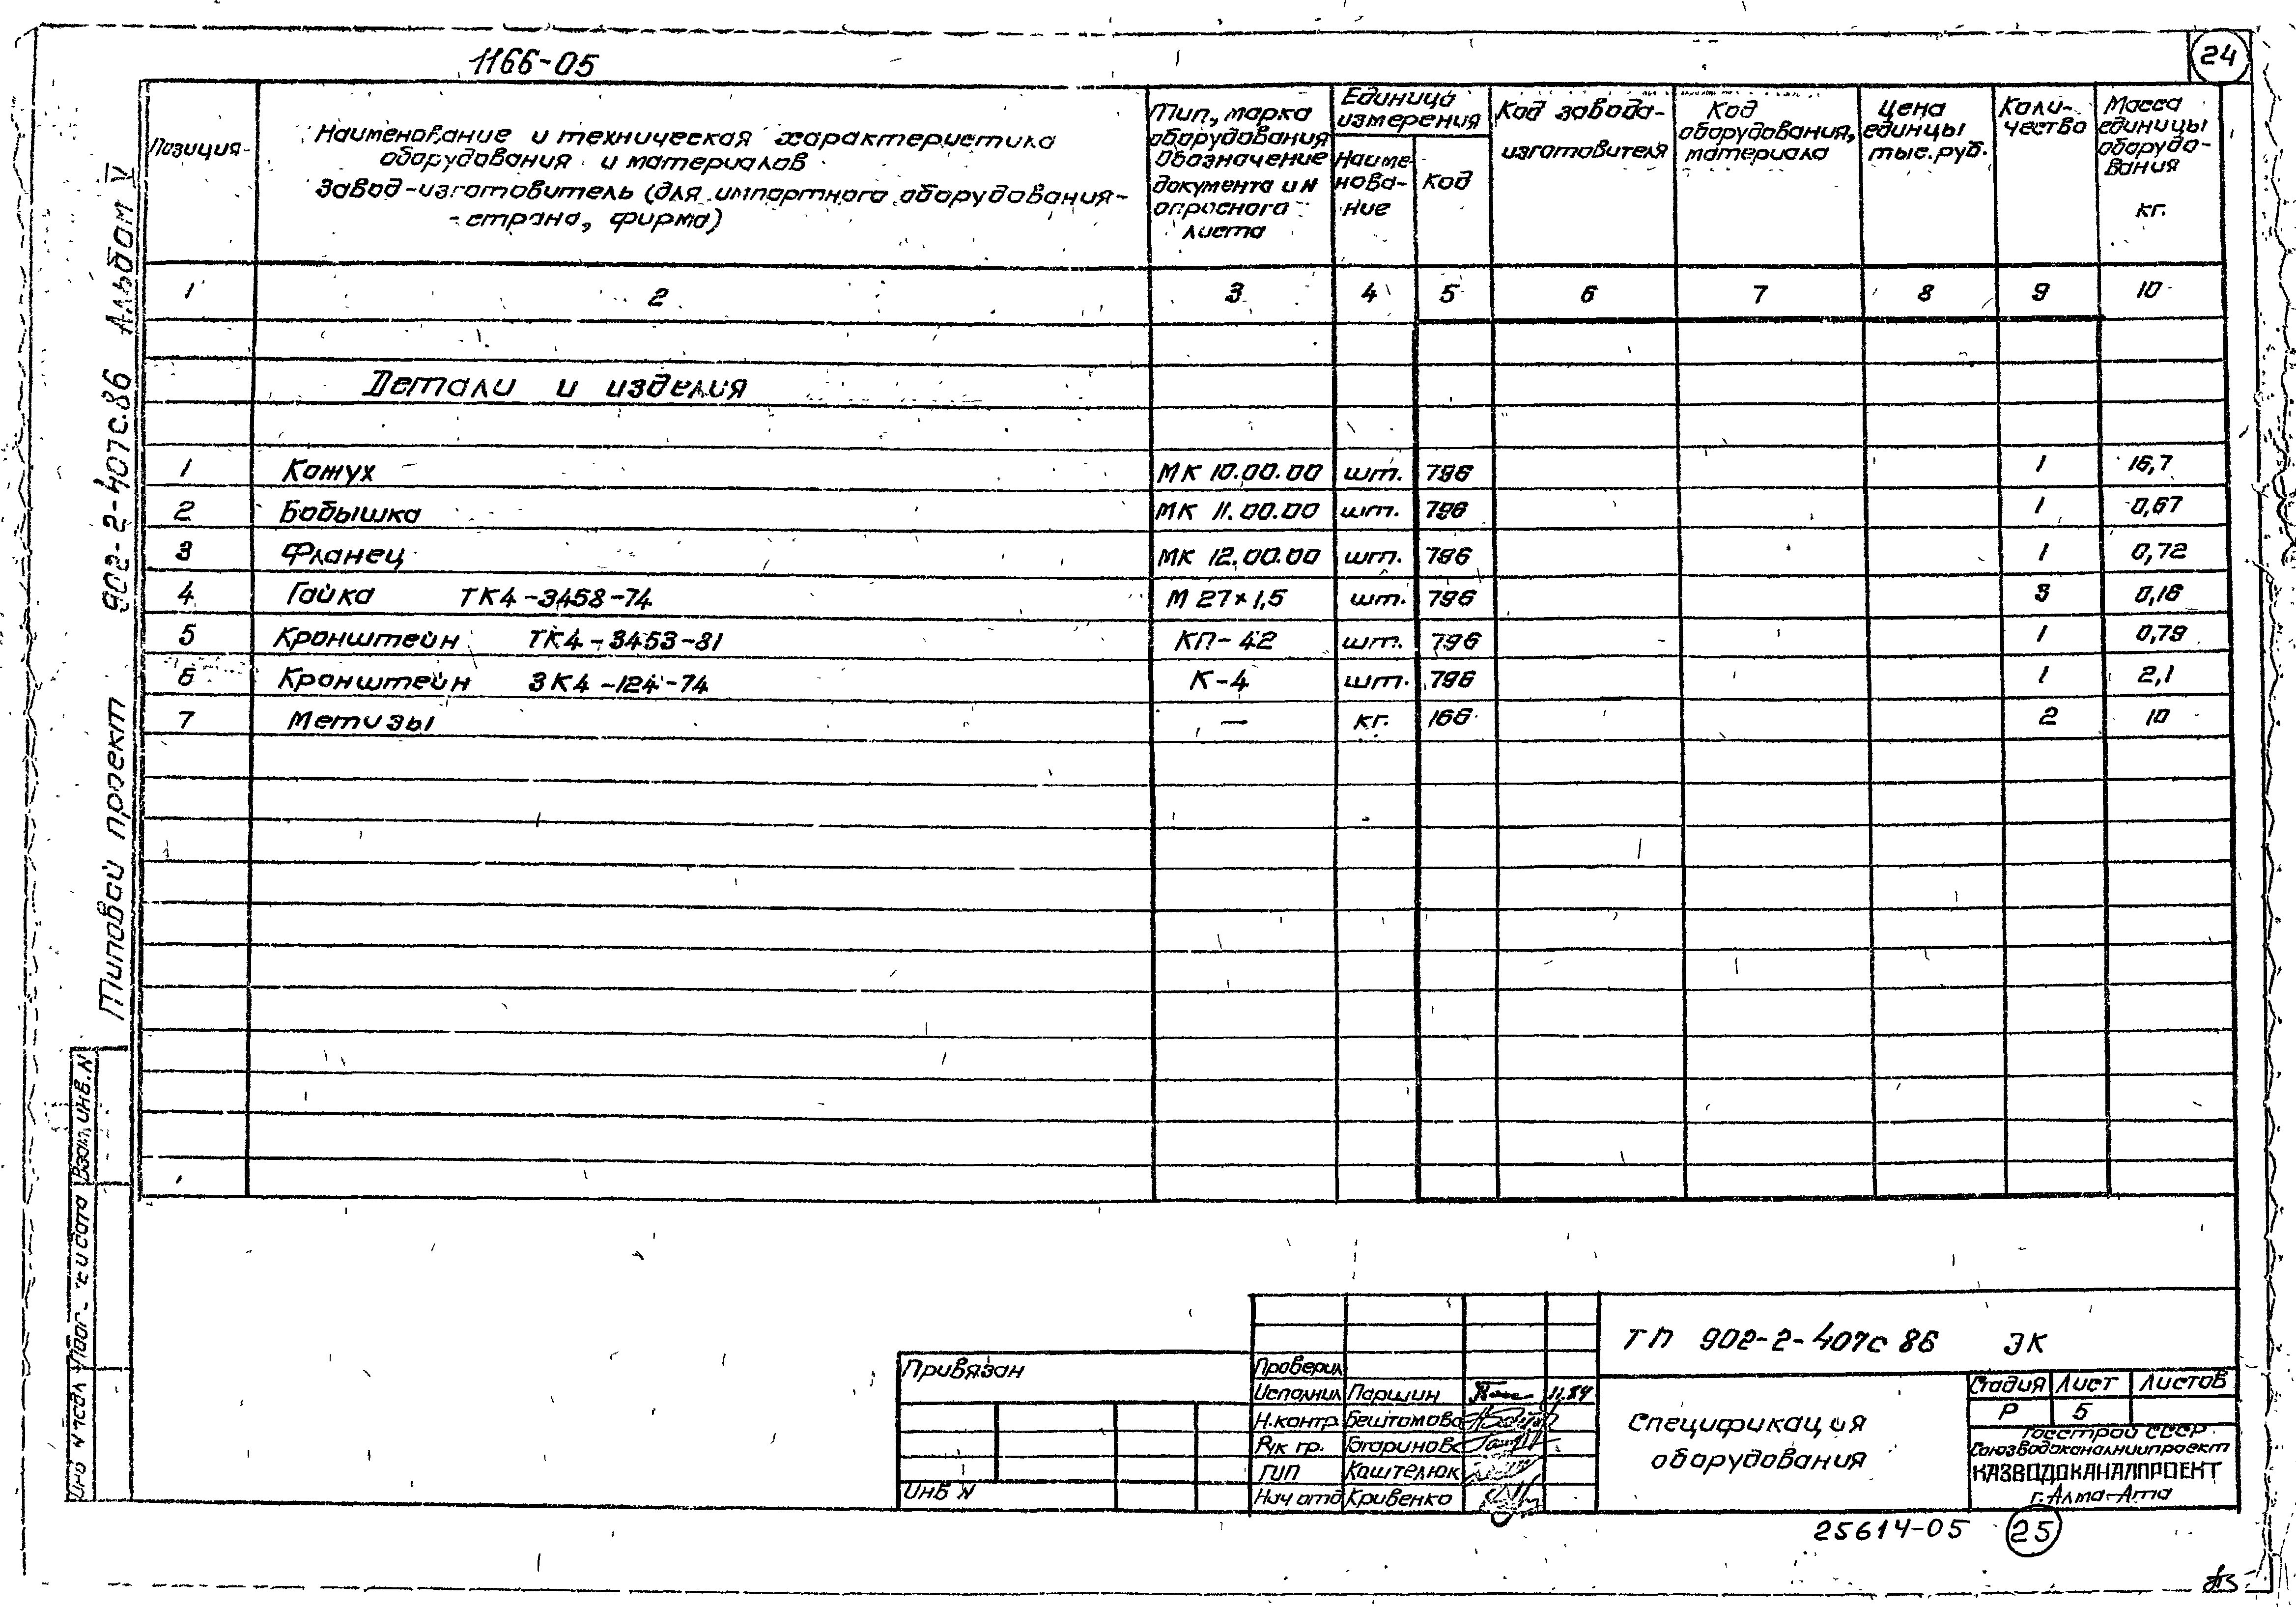 1166-05
24
Типовой проект 902-2-407с.86 Альбом V
Позиция
Наименование и техническая характеристика
оборудования и материалов
Завод-изготовитель (для импортного оборудования-
-страна, фирма)
Тип, марка
оборудования
Обозначение
документа и N
опросного
листа
Единица
измерения
Наиме-
нова-
ние
Код
Код завода-
изготовителя
Код
оборудования,
материала
Цена
единцы
тыс.руб.
Коли-
чество
Масса
единицы
оборудо-
вания
кг.
1 2 3 4 5 6 7 8 9 10
Детали и изделия
1 Кожух МК 10.00.00 шт. 796 1 16,7
2 Бобышка МК 11.00.00 шт. 796 1 0,67
3 Фланец МК 12.00.00 шт. 796 1 0,72
4 Гайка ТК4-3458-74 М 27×1,5 шт. 796 3 0,16
5 Кронштейн ТК4-3453-81 КП-42 шт. 796 1 0,79
6 Кронштейн ЗК4-124-74 К-4 шт. 796 1 2,1
7 Метизы — кг. 166 2 10
Взам. инв. N
и дата
Привязан
Инв N
Проверил
Исполнил Паршин 11.84
Н.контр. Бештомова
Рук гр.
ГИП Каштелюк
Нач отд Кривенко
ТП 902-2-407с 86 ЭК
Спецификация
оборудования
Стадия Лист Листов
Р 5
Госстрой СССР
Союзводоканалниипроект
КАЗВОДОКАНАЛПРОЕКТ
г. Алма-Ата
25614-05 25